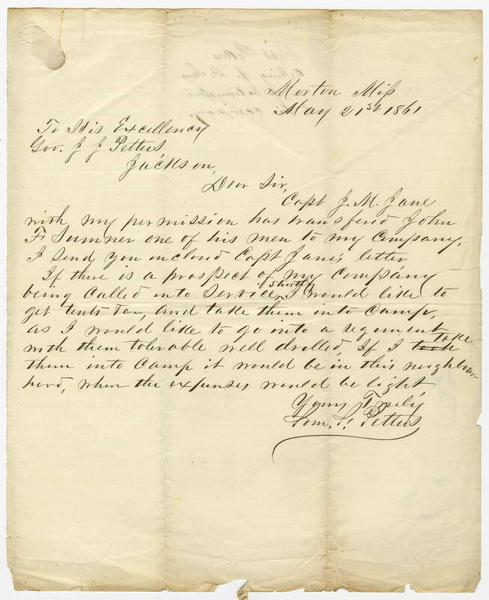 Morton Miss
May 21st 1861
To His Excellency
Gov. J J Pettus
Jackson,
Dear Sir,
Capt J. M. Jane
with my permission has transferd John
F. Sumner one of his men to my Company.
I send you inclosed Capt Jane's letter
If there is a prospect of my Company
being called into service shortly I would like to
get tents &c, and take them into Camp,
as I would like to go into a regiment
with them tolerable well drilled, If I took take
them into Camp it would be in this neighbor-
hood, when the expenses would be light
Yours Truly
Tom. J. Pettus